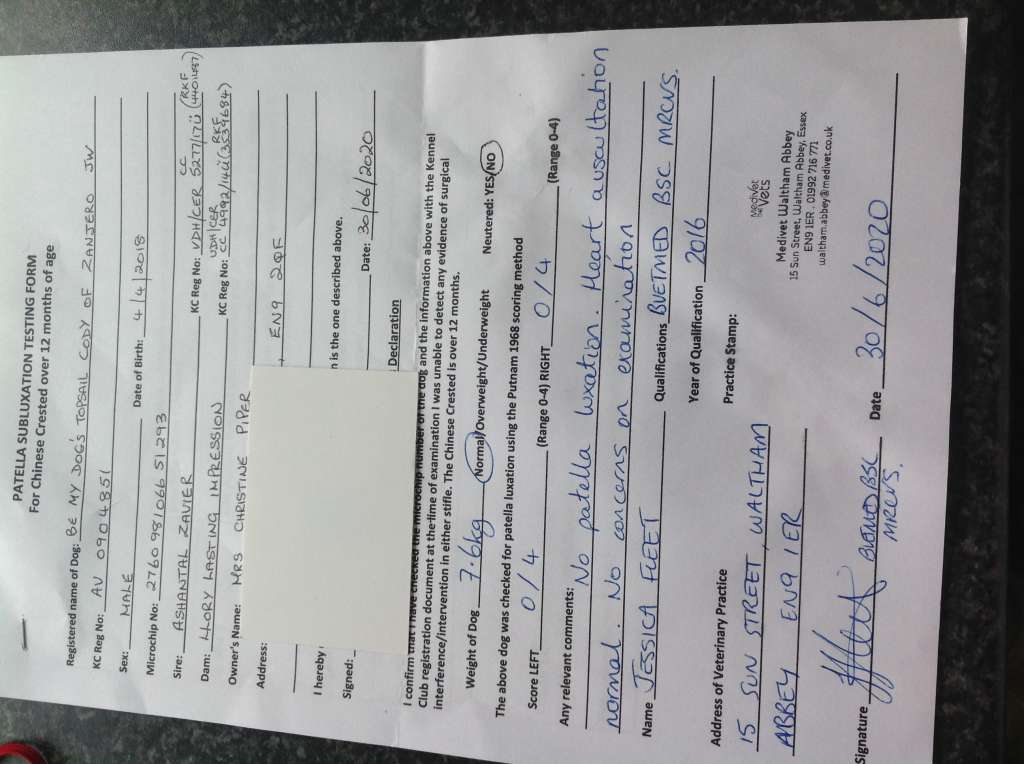 PATELLA SUBLUXATION TESTING FORM
For Chinese Crested over 12 months of age
Registered name of Dog: BE MY DOG'S TOPSAIL CODY OF ZANJERO JW
KC Reg No: AV 0904851
Sex: MALE Date of Birth: 4/4/2018
Microchip No: 276098106651293
Sire: ASHANTAL ZAVIER KC Reg No: VDH/CER CC 5277/17Ü (RKF 4401487)
Dam: LLORY LASTING IMPRESSION KC Reg No: VDH/CER CC 4992/14Ü (RKF 3539684)
Owner's Name: MRS CHRISTINE PIPER
Address: , EN9 2QF
I hereby n is the one described above.
Signed: Date: 30/06/2020
Declaration
I confirm that I have checked the microchip number of the dog and the information above with the Kennel
Club registration document at the time of examination I was unable to detect any evidence of surgical
interference/intervention in either stifle. The Chinese Crested is over 12 months.
Weight of Dog 7.6kg Normal/Overweight/Underweight Neutered: YES/NO
The above dog was checked for patella luxation using the Putnam 1968 scoring method
Score LEFT 0/4 (Range 0-4) RIGHT 0/4 (Range 0-4)
Any relevant comments: No patella luxation. Heart auscultation
normal. No concerns on examination
Name JESSICA FLEET Qualifications BVETMED BSC MRCVS.
Year of Qualification 2016
Address of Veterinary Practice Practice Stamp:
15 SUN STREET, WALTHAM
ABBEY EN9 1ER
Medivet
the Vets
Medivet Waltham Abbey
15 Sun Street, Waltham Abbey, Essex
EN9 1ER . 01992 716 771
waltham.abbey@medivet.co.uk
Signature BVEMED BSC MRCVS. Date 30/6/2020